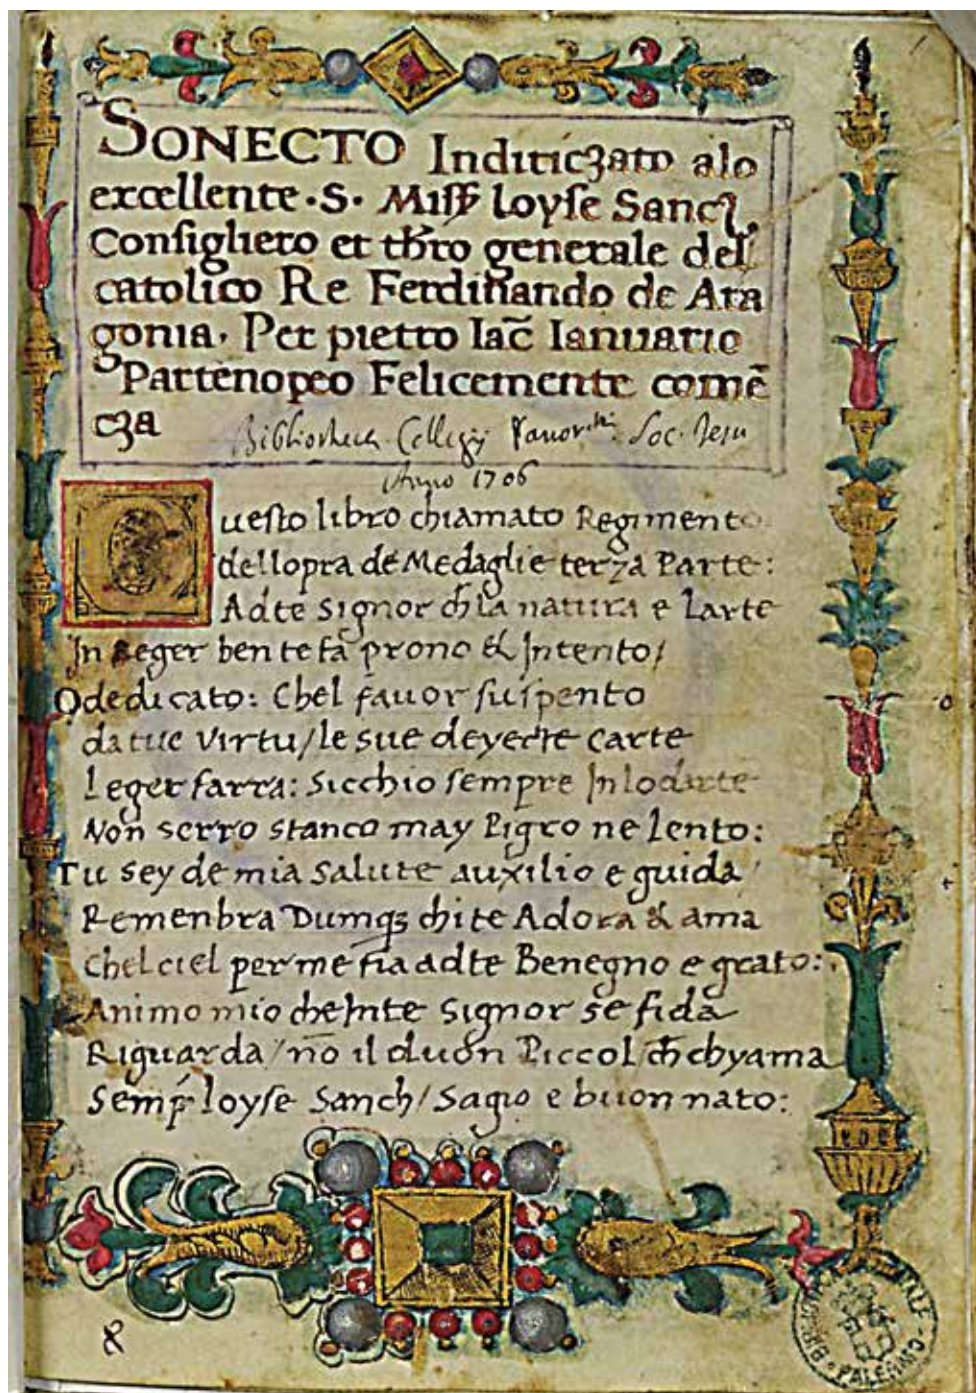 SONECTO Inditiczato alo
excellente .S. Miss͞ loyse Sancz.
Consigliero et th͞ro generale del
catolico Re Ferdinando de Ara
gonia. Per pietro Iac͞ Ianuario
Partenopeo Felicemente come͞
cza
Bibliotheca Collegij Soc. Jesu
Anno 1706
Questo libro chiamato Regimento
dellopra de Medaglie terza Parte:
Adte Signor ch͞ la natura e Larte
In Reger ben te fa prono & Intento/
O dedicato: Chel favor suspento
da tue virtu/le sue deyecte carte
Leger farra: Sicchio sempre In lodarte
Non serro stanco may Pigro ne lento:
Tu sey de mia Salute auxilio e guida/
Remenbra Dumqꝫ chi te Adora & ama
Chel ciel per me fia adte Benegno e grato:
Animo mio che Inte Signor se fida
Riguarda/no͞ il duon Piccol/ch͞ chyama
Semp͞ loyse Sanch/Sagio e buon nato:
PALERMO